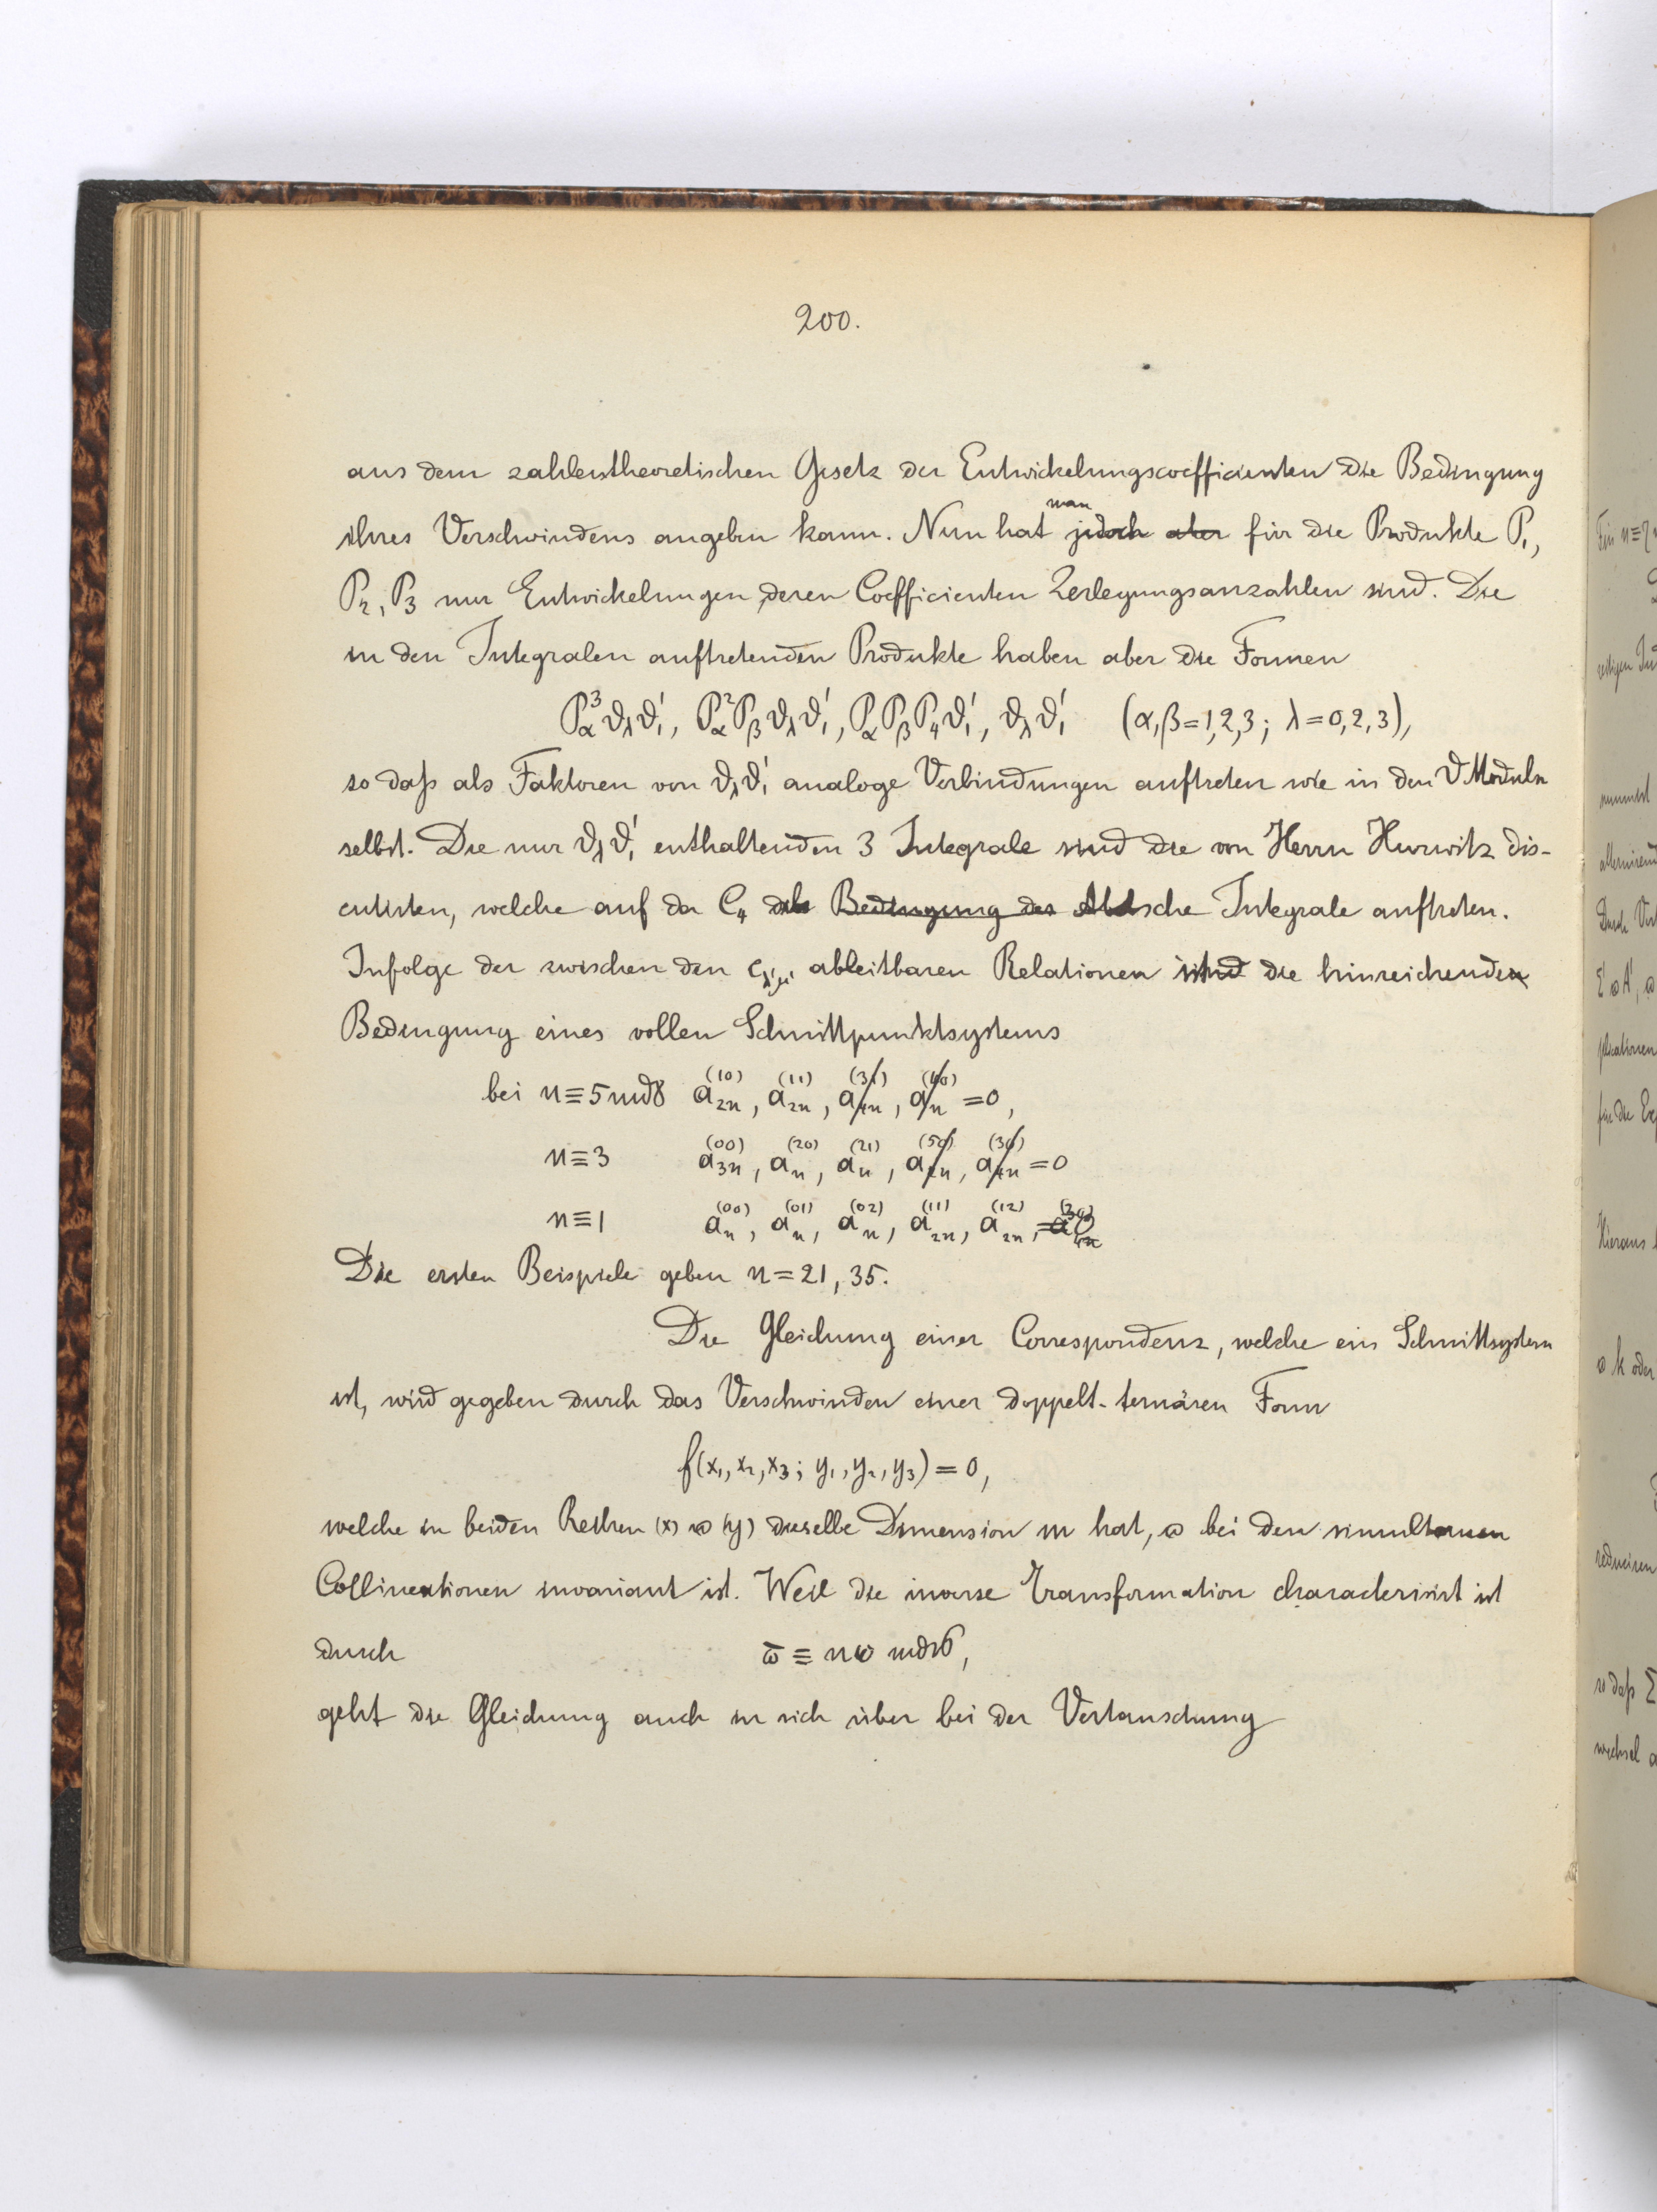 200.
aus dem zahlentheoretischen Gesetz der Entwickelungscoefficienten die Bedingung
man
ihres Verschwindens angeben kann. Nun hat jedoch aber für die Produkte P₁,
P₂, P₃ nur Entwickelungen, deren Coefficienten Zerlegungsanzahlen sind. Die
in den Integralen auftretenden Produkte haben aber die Formen
P_α³ϑ_λϑ₁', P_α²P_βϑ_λϑ₁', P_αP_βP₄ϑ₁', ϑ_λϑ₁' (α,β=1,2,3; λ=0,2,3),
so daß als Faktoren von ϑ_λϑ₁' analoge Verbindungen auftreten wie in den ϑModuln
selbst. Die nur ϑ_λϑ₁' enthaltenden 3 Integrale sind die von Herrn Hurwitz dis-
cutirten, welche auf der C₄ als Bedingung der Abelsche Integrale auftreten.
Infolge der zwischen den ableitbaren Relationen sind die hinreichenden
Bedingung eines vollen Schnittpunktsystems
bei n≡5 mod 8 a₂ₙ⁽¹⁰⁾, a₂ₙ⁽¹¹⁾, a₄ₙ⁽³¹⁾, aₙ⁽⁴⁰⁾ =0,
n≡3 a₃ₙ⁽⁰⁰⁾, aₙ⁽²⁰⁾, aₙ⁽²¹⁾, a₂ₙ⁽⁵⁰⁾, a₄ₙ⁽³⁰⁾ =0
n≡1 aₙ⁽⁰⁰⁾, aₙ⁽⁰¹⁾, aₙ⁽⁰²⁾, a₂ₙ⁽¹¹⁾, a₂ₙ⁽¹²⁾, =0
Die ersten Beispiele geben n=21, 35.
Die Gleichung einer Correspondenz, welche ein Schnittsystem
ist, wird gegeben durch das Verschwinden einer doppelt-ternären Form
f(x₁, x₂, x₃; y₁, y₂, y₃) = 0,
welche in beiden Reihen (x) u (y) dieselbe Dimension m hat, u bei den simultanen
Collineationen invariant ist. Weil die inverse Transformation characterisirt ist
durch ω̄ ≡ nω mod 16,
geht die Gleichung auch in sich über bei der Vertauschung